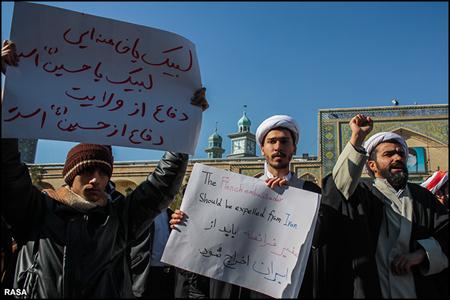 لبیک یا خامنه ایی
لبیک یا حسین (ع) است
دفاع از ولایت
دفاع از حسین (ع) است
The French ambassador
Should be expelled from Iran
سفیر فرانسه باید از
ایران اخراج شود
RASA